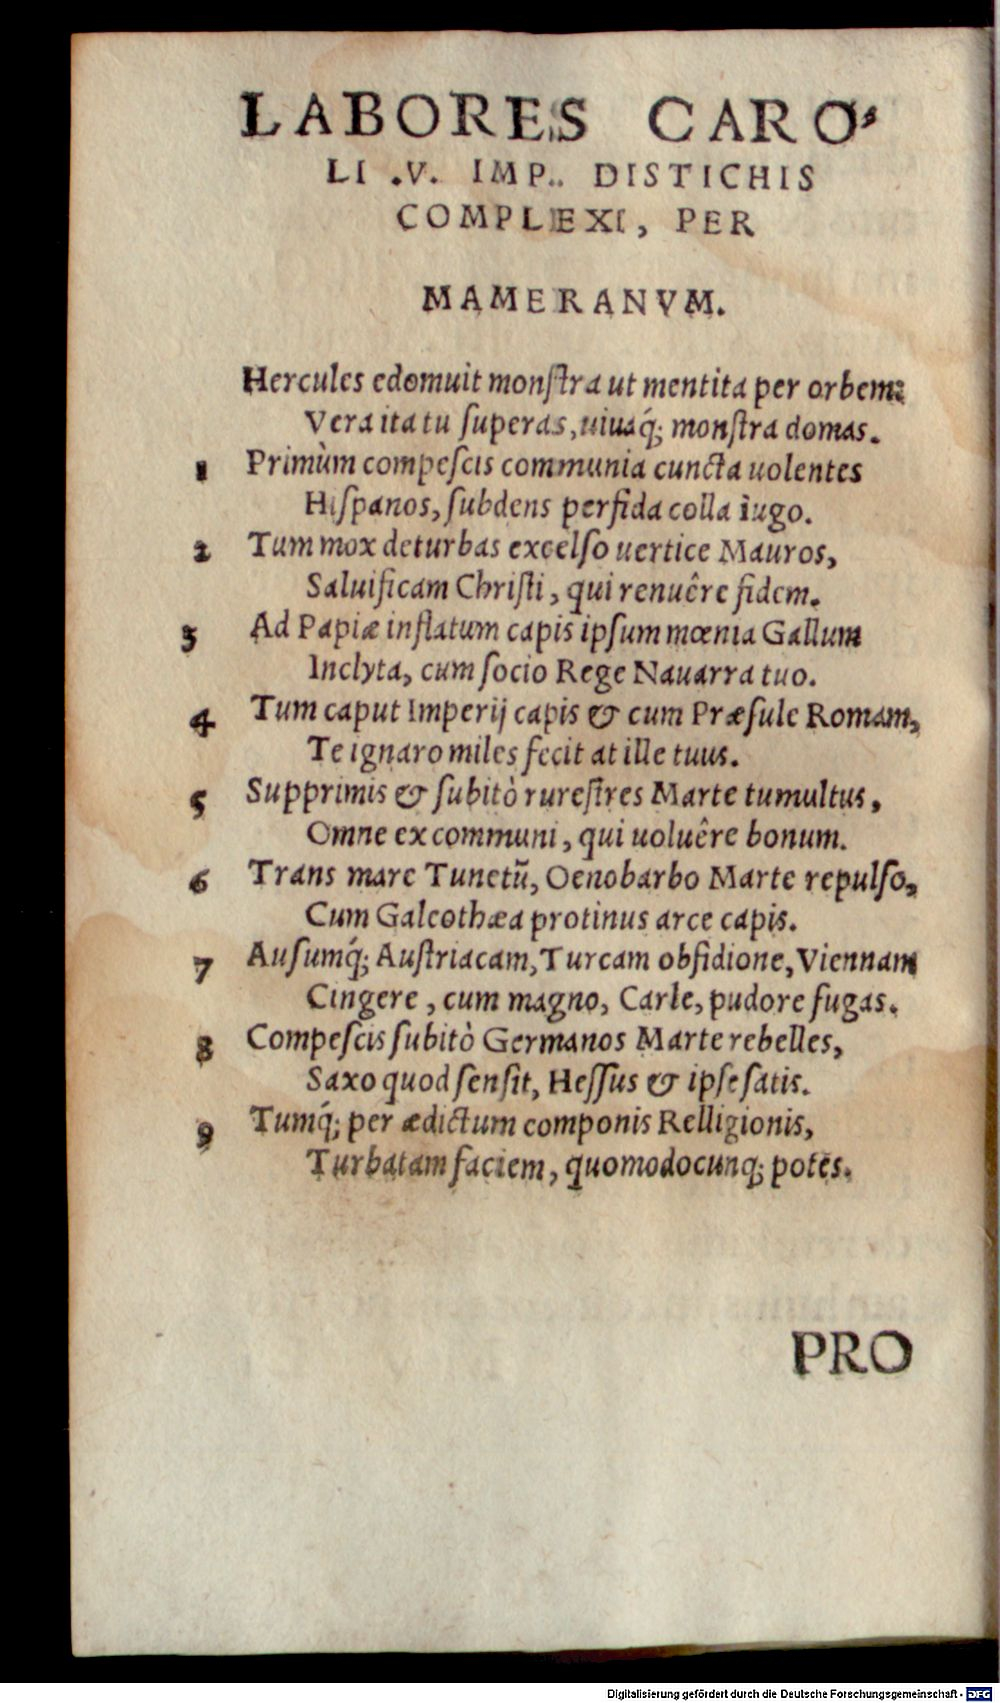 LABORES CARO-
LI .V. IMP.. DISTICHIS
COMPLEXI, PER
MAMERANVM.
Hercules edomuit monſtra ut mentita per orbem:
Vera ita tu ſuperas, uiuaq́; monſtra domas.
1 Primùm compeſcis communia cuncta uolentes
Hiſpanos, ſubdens perfida colla iugo.
2 Tum mox deturbas excelſo uertice Mauros,
Saluificam Chriſti, qui renuêre fidem.
3 Ad Papiæ inflatum capis ipſum mœnia Gallum
Inclyta, cum ſocio Rege Nauarra tuo.
4 Tum caput Imperij capis & cum Præſule Romam,
Te ignaro miles fecit at ille tuus.
5 Supprimis & ſubitò rureſtres Marte tumultus,
Omne ex communi, qui uoluêre bonum.
6 Trans mare Tunetũ, Oenobarbo Marte repulſo,
Cum Galeothæa protinus arce capis.
7 Auſumq́; Auſtriacam, Turcam obſidione, Viennam
Cingere, cum magno, Carle, pudore fugas.
8 Compeſcis ſubitò Germanos Marte rebelles,
Saxo quod ſenſit, Heſſus & ipſe ſatis.
9 Tumq́; per ædictum componis Relligionis,
Turbatam faciem, quomodocunq; potes.
PRO
Digitalisierung gefördert durch die Deutsche Forschungsgemeinschaft - DFG